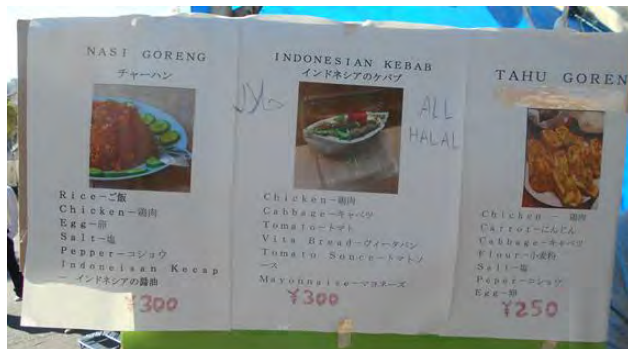 NASI GORENG
チャーハン
Rice－ご飯
Chicken－鶏肉
Egg－卵
Salt－塩
Pepper－コショウ
Indoneisan Kecap
－インドネシアの醤油
¥300
INDONESIAN KEBAB
インドネシアのケバブ
ALL
HALAL
Chicken－鶏肉
Cabbage－キャベツ
Tomato－トマト
Vita Bread－ヴィータパン
Tomato Sonce－トマトソ
ース
Mayonnaise－マヨネーズ
¥300
TAHU GOREN
Chichen － 鶏肉
Carrot－にんじん
Cabbage－キャベツ
Flour－小麦粉
Salt－塩
Peper－コショウ
Egg－卵
¥250